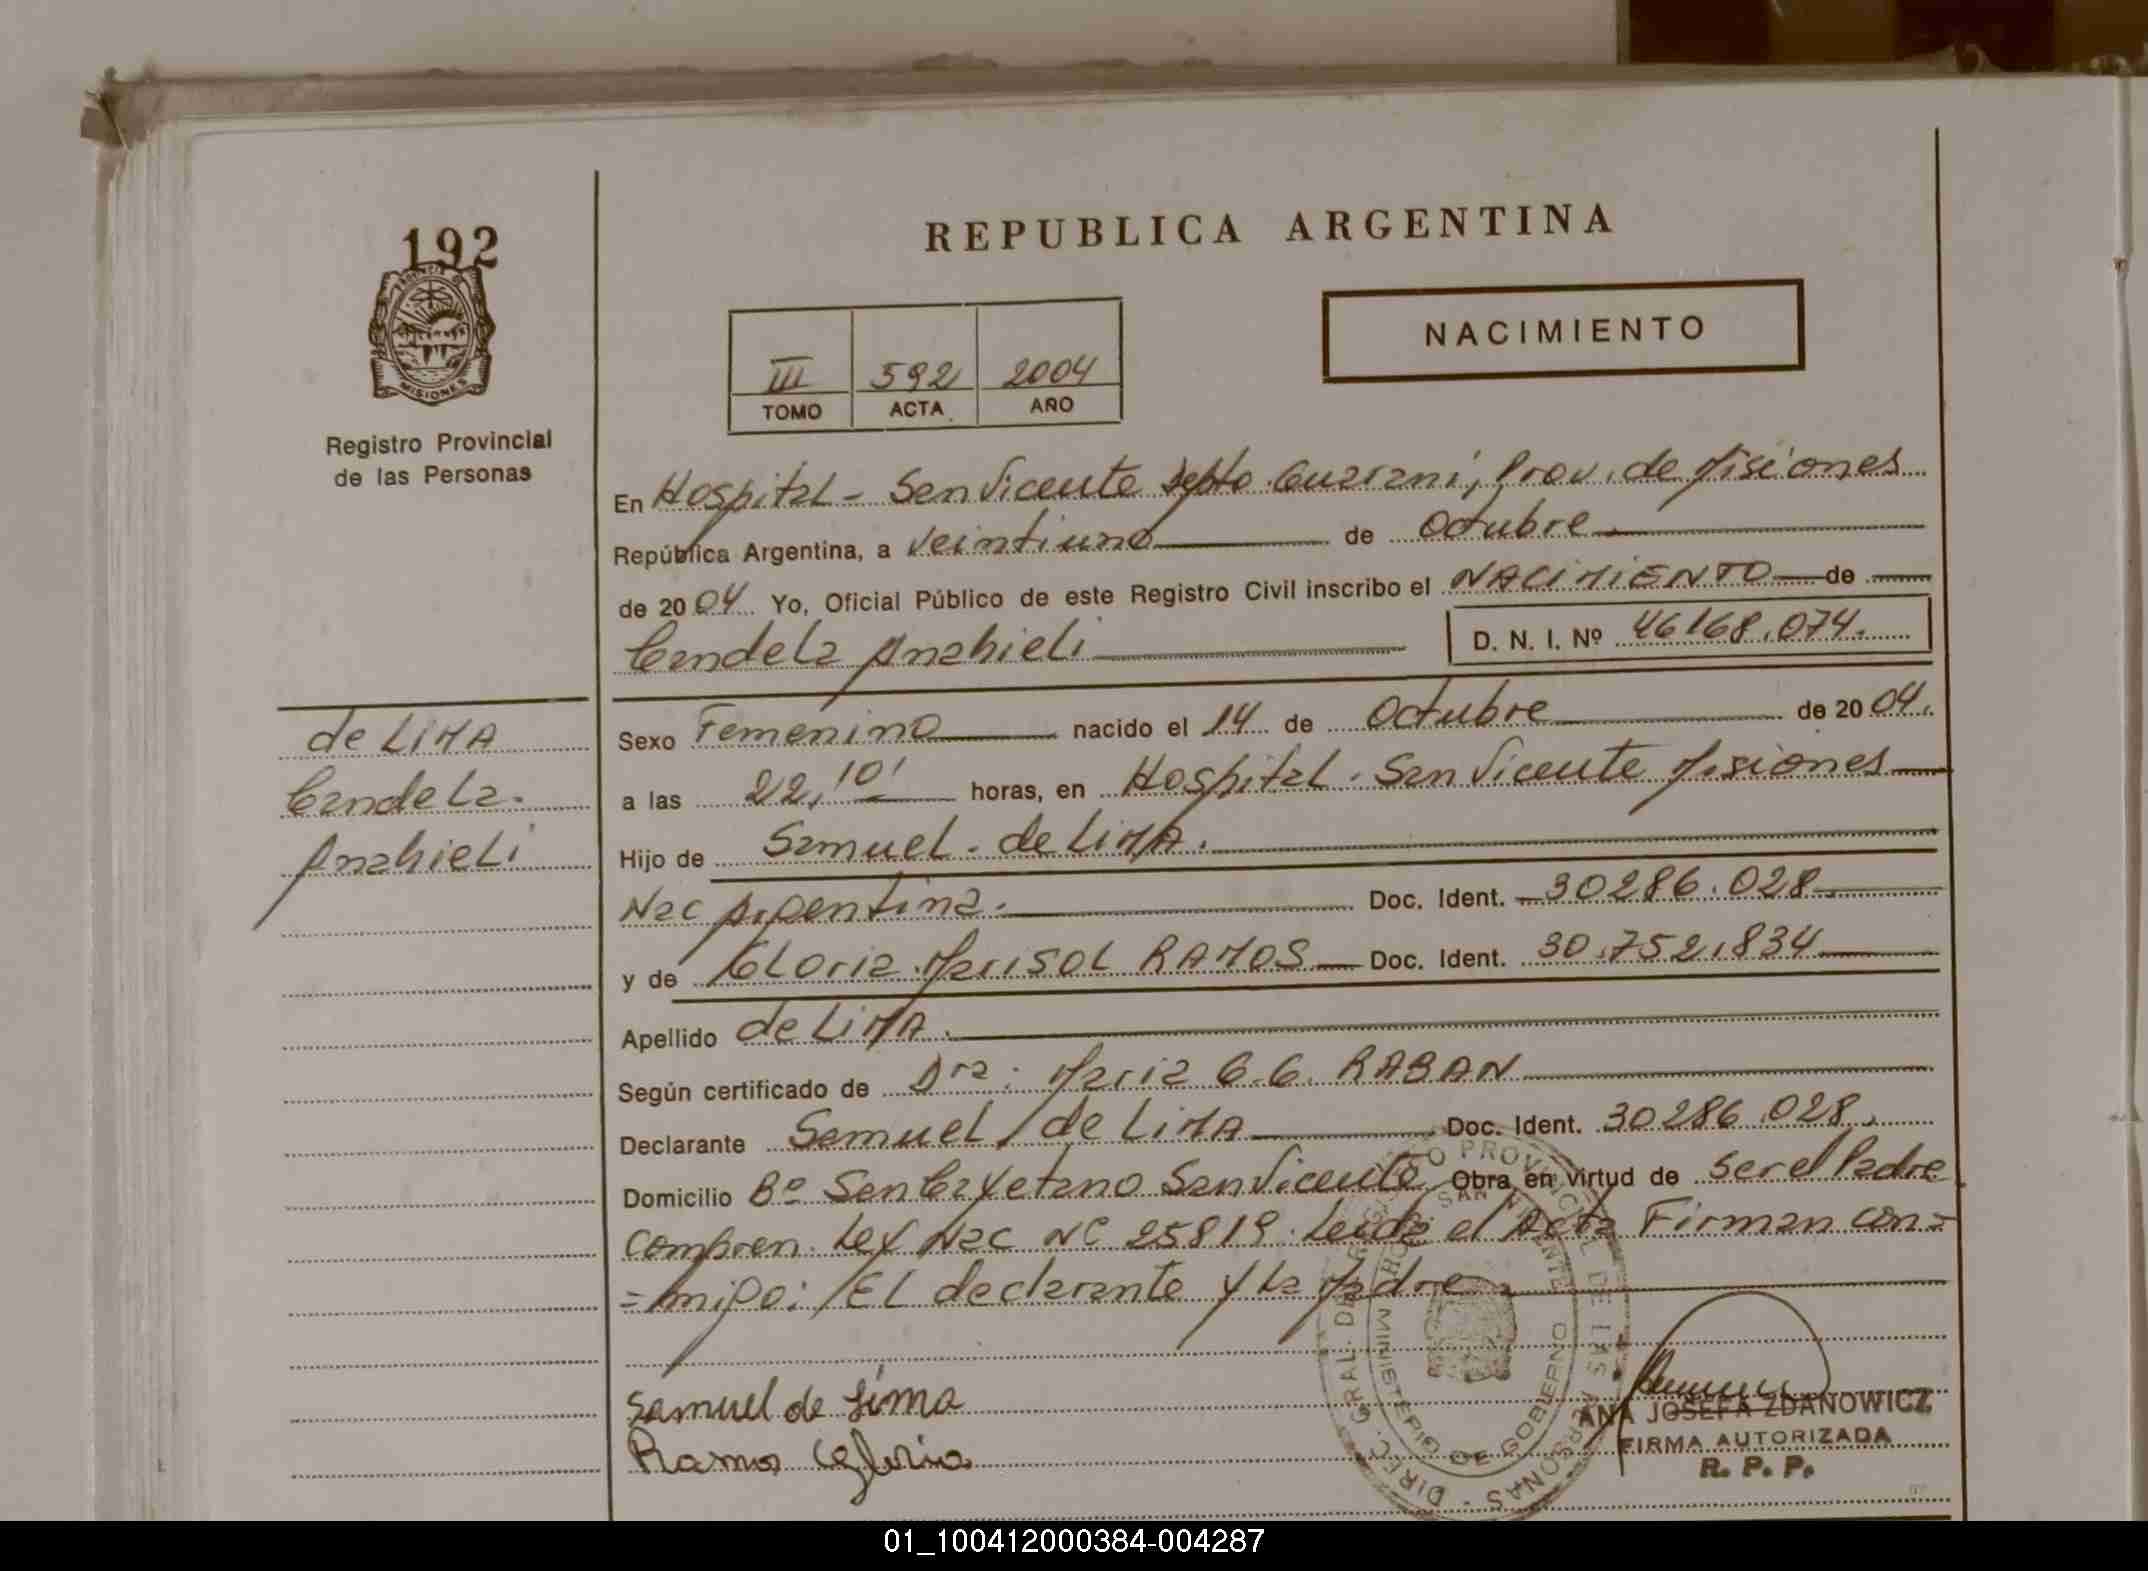 192
REPUBLICA ARGENTINA
NACIMIENTO
III 592 2004
TOMO ACTA AÑO
MISIONES
Registro Provincial
de las Personas
En Hospital - San Vicente Depto. Guarani, Prov. de Misiones
República Argentina, a veintiuno de Octubre
de 2004 Yo, Oficial Público de este Registro Civil inscribo el NACIMIENTO de
Candela Anahieli D. N. I. Nº 46168.074.
de LIMA
Candela
Anahieli
Sexo Femenino nacido el 14 de Octubre de 2004.
a las 22,10' horas, en Hospital. San Vicente Misiones
Hijo de Samuel. de LiMA.
Nac Argentina. Doc. Ident. 30286.028
y de Gloria Marisol RAMOS Doc. Ident. 30.752.834
Apellido de LiMA.
Según certificado de Dra. Maria G.G. RABAN
Declarante Samuel de LiMA Doc. Ident. 30286.028.
Domicilio Bº San Cayetano San Vicente Obra en virtud de ser el Padre
Compren. Ley Nac Nº 25819. Leida el Acta Firman con=
=migo: El declarante y La Madre
Samuel de Lima
Ramos Gloria
DIREC. GRAL. DEL REGISTRO PROVINCIAL DE LAS PERSONAS
MINISTERIO DE GOBIERNO
ANA JOSEFA ZDANOWICZ
FIRMA AUTORIZADA
R. P. P.
01_100412000384-004287